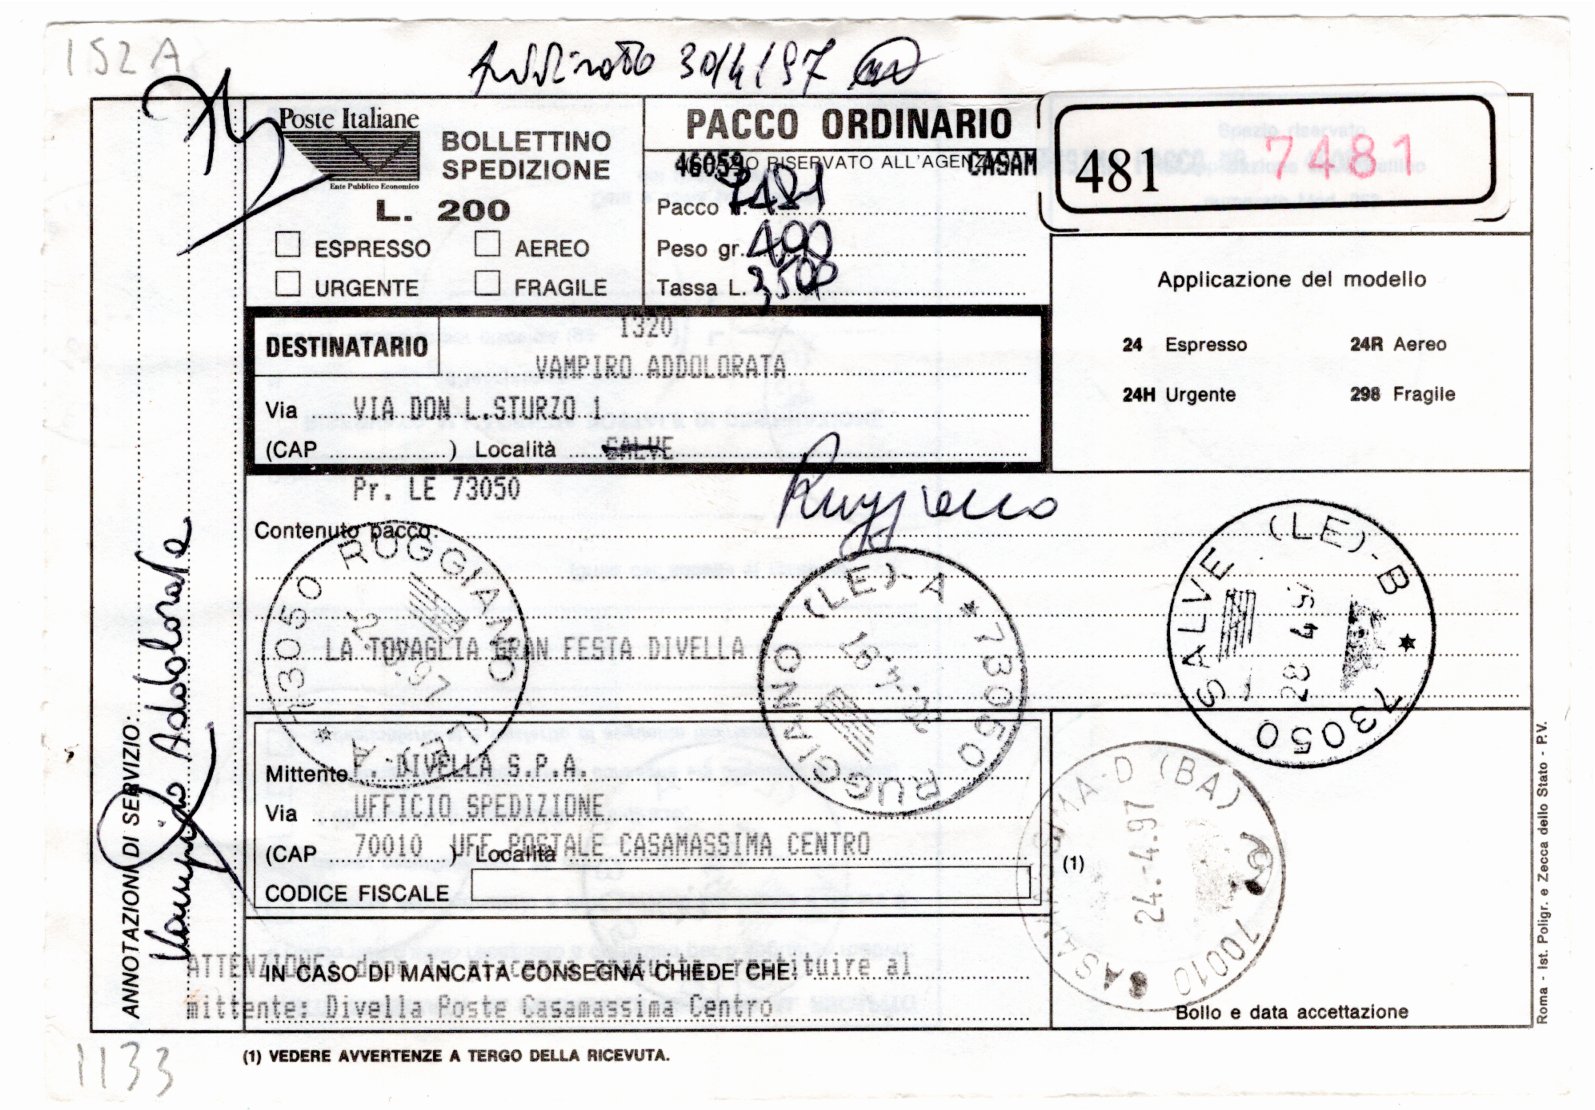 152A
30/4/97
Poste Italiane
Ente Pubblico Economico
BOLLETTINO
SPEDIZIONE
L. 200
ESPRESSO AEREO
URGENTE FRAGILE
PACCO ORDINARIO
46059 RISERVATO ALL'AGENZIA CASAM
Pacco N. 7481
Peso gr. 400
Tassa L. 3500
481 7481
Applicazione del modello
24 Espresso 24R Aereo
24H Urgente 298 Fragile
DESTINATARIO
1320
VAMPIRO ADDOLORATA
Via VIA DON L.STURZO 1
(CAP ) Località SALVE
Pr. LE 73050
Ruggiano
Contenuto pacco:
LA TOVAGLIA GRAN FESTA DIVELLA
73050 RUGGIANO (LE) - A *
73050 RUGGIANO (LE) - A *
73050 SALVE (LE) - B *
28 4
Mittente F. DIVELLA S.P.A.
Via UFFICIO SPEDIZIONE
(CAP 70010 ) Località UFF POSTALE CASAMASSIMA CENTRO
CODICE FISCALE
(1)
70010 CASAMASSIMA-D (BA)
24.-4.97
Bollo e data accettazione
IN CASO DI MANCATA CONSEGNA CHIEDE CHE:
ATTENZIONE: dopo la giacenza gratuita restituire al
mittente: Divella Poste Casamassima Centro
ANNOTAZIONI DI SERVIZIO:
Vampiro Addolorata
(1) VEDERE AVVERTENZE A TERGO DELLA RICEVUTA.
Roma - Ist. Poligr. e Zecca dello Stato - P.V.
1133